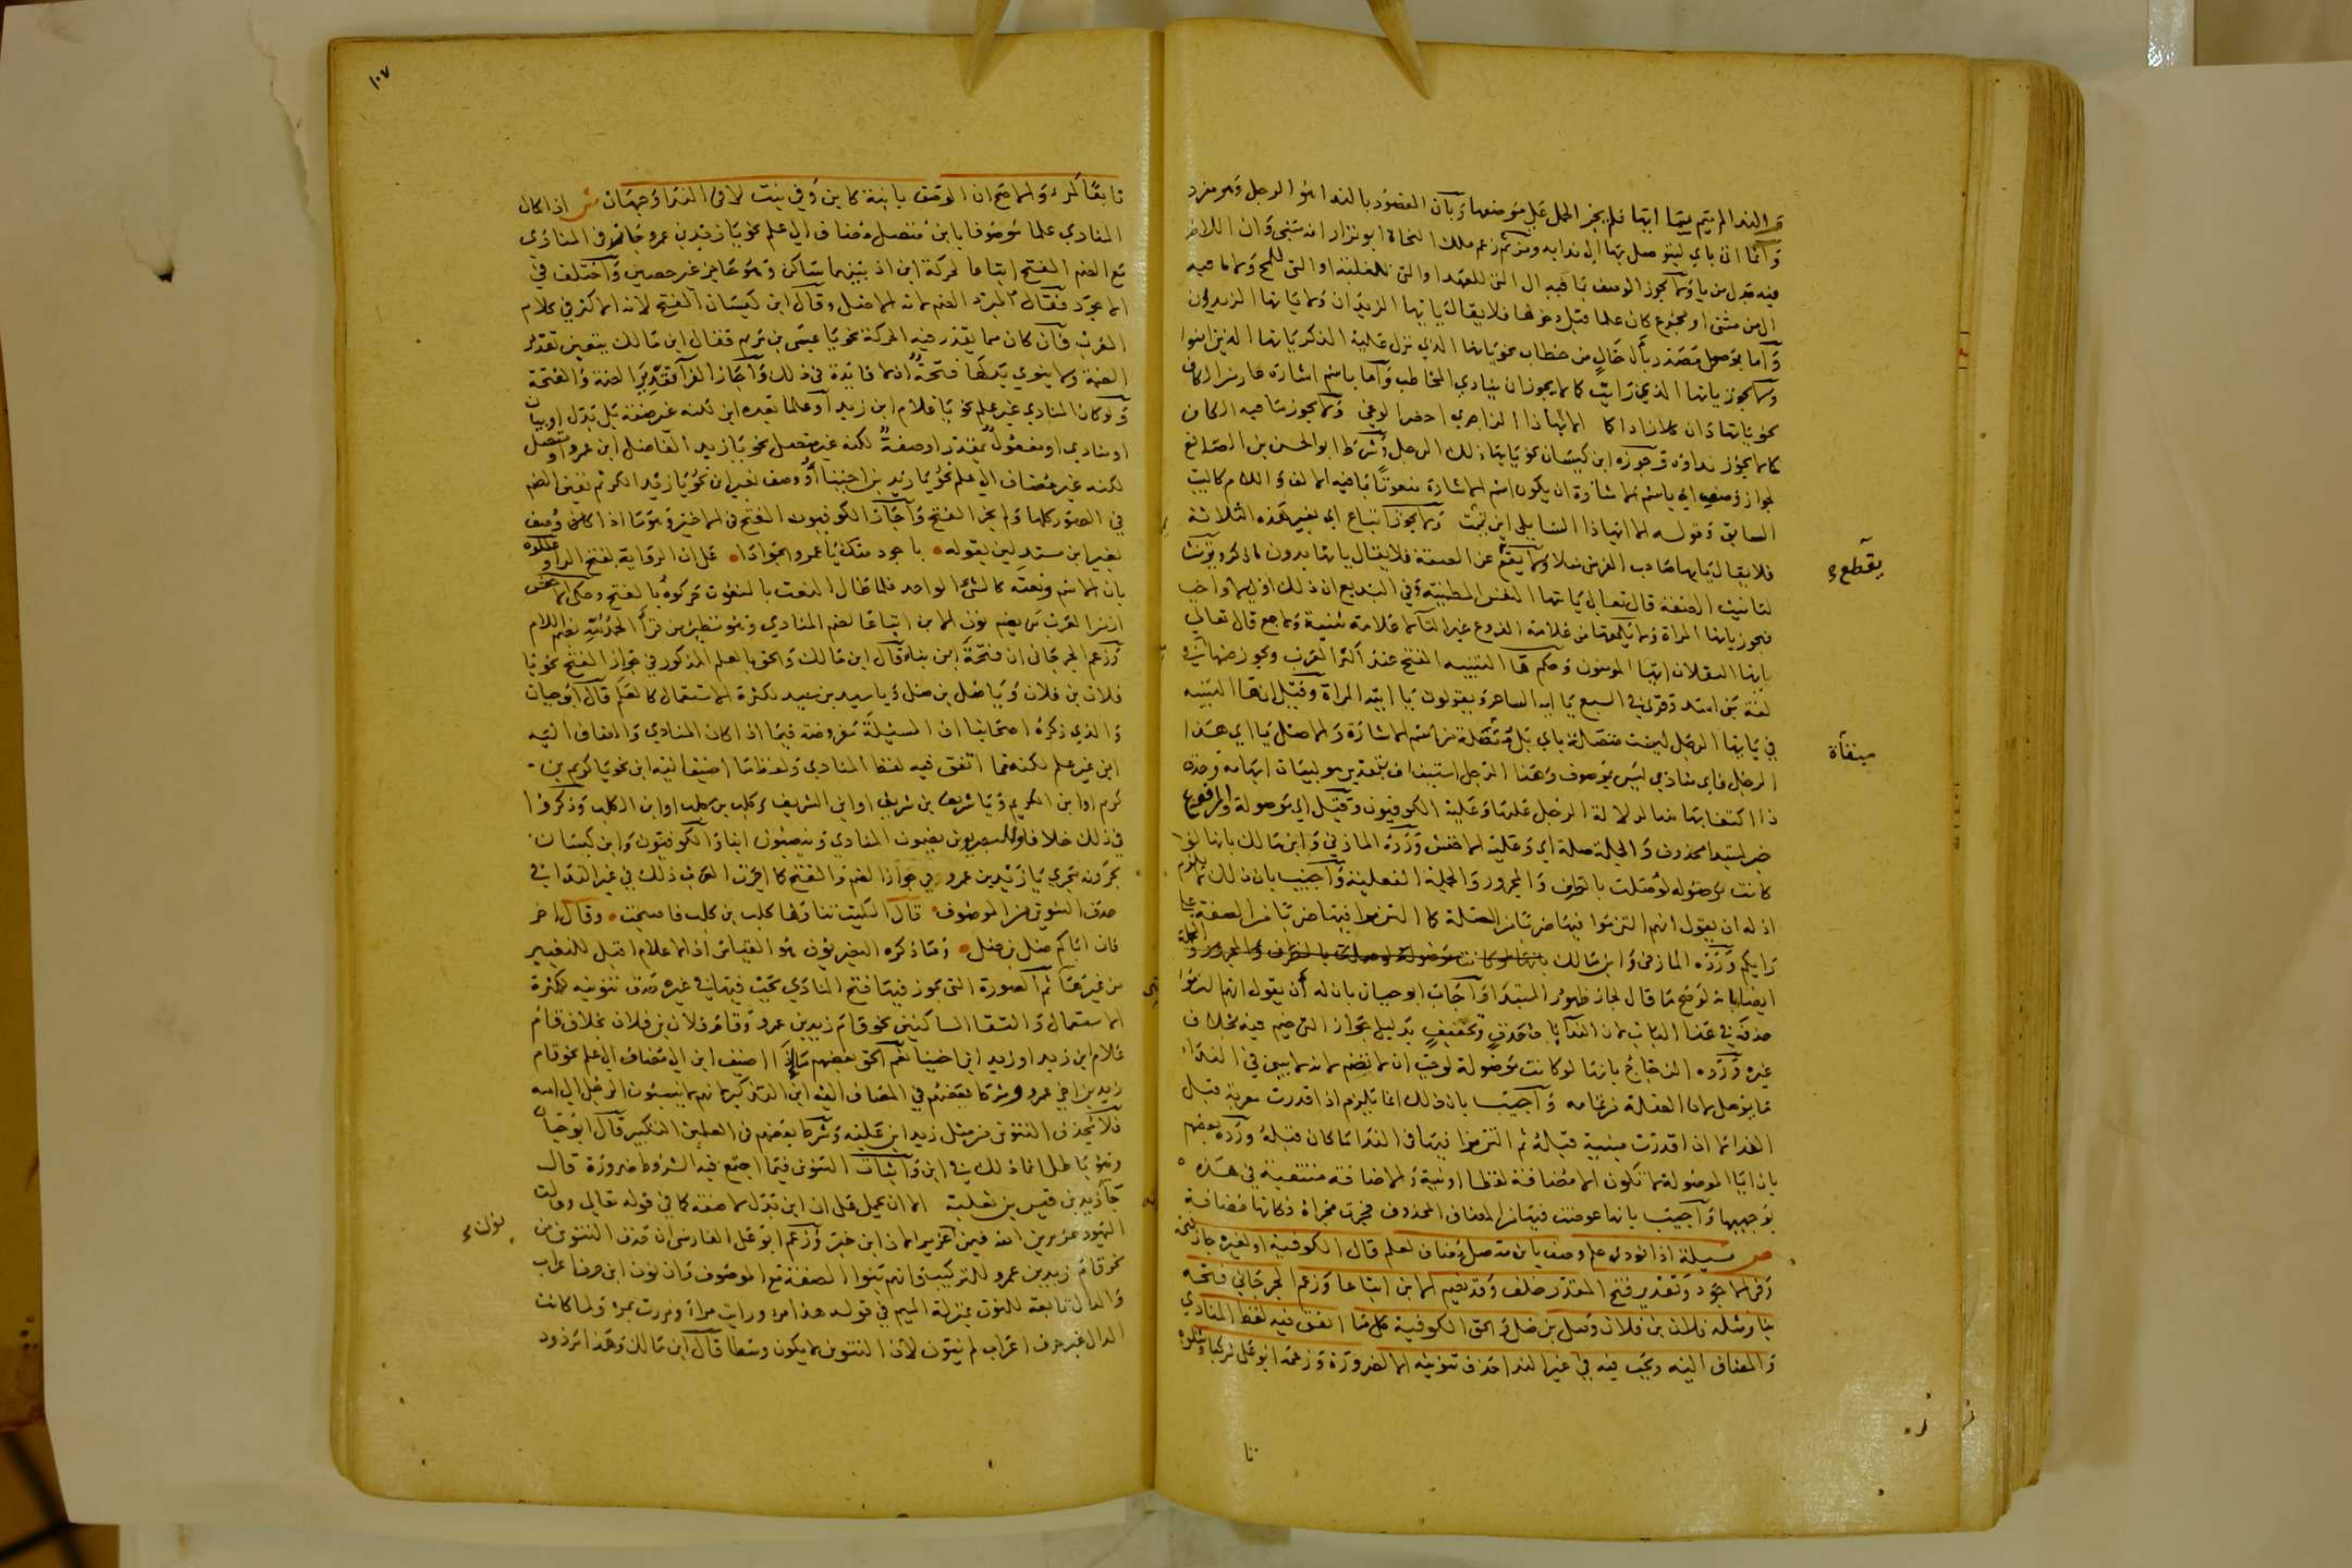 والندا لم يتم بيا ايها فلم يجز الحمل على موضعها وبان المقصود بالندا هو الرجل وهو مفرد
وانما اتى باي ليتوصل بها الى ندايه ومن ثم زعم ملك النحاة ابو نزار انه مبنى وان اللام
فيه بدل من يا ولا يجوز الوصف بما فيه ال التى للعهد او التى للغلبة او التى للمح ولا ما فيه
ال من مثنى او مجموع كان علما قبل دخولها فلا يقال يا يها الزيدان ولا يا يها الزيدون
واما بموصل مصدر بال خال من خطاب نحو يايها الذي نزل عليه الذكر يا يها الذين امنوا
ولا يجوز يايها الذي رايت كما لا يجوز ان ينادي المخاطب واما باسم اشارة عار من الكاف
نحو يا يهاذان كلا زادا كما الا ايهاذا الزاجري احضر الوغى ولا يجوز بما فيه الكاف
كما لا يجوز نداوه وجوزه ابن كيسان نحو يا يها ذلك الرجل وشرط ابو الحسن بن الصايغ
لجواز وصف اي باسم الاشارة ان يكون اسم الاشارة منعوتا بما فيه الالف واللام كالبيت
السابق وقوله الا ايهاذا السايلي اين يممت ولا يجوز اتباع اي بغير هذه الثلاثة
فلا يقال يا يها صاحب الفرس مثلا ولا يقع عن الصفة فلا يقال يا يها بدون ما ذكر ويؤنث
لتانيث الصفة قال تعالى يا يتها النفس المطمئنة وفي البديع ان ذلك اولى لا واجب
فيجوز يايها المراة ولا يلحقها من علامة الفروع غير التا لا علامة تثنية ولا جمع قال تعالى
ايها الثقلان ايها المومنون وحكم ها التنبيه الفتح عند اكثر العرب ويجوز ضمها في
لغة بني اسد وقرئ في السبع يا ايه الساحر ويقولون يا ايته المراة وقيل ان ها التنبيه
في يا يها الرجل ليست متصلة باي بل متصلة من اسم الاشارة والاصل يا اي هذا
الرجل فاي منادي ليس بموصوف وهذا الرجل استيناف بتقدير هو لبيان ابهامه وحذف
ذا اكتفا بها لدلالة الرجل عليها وعليه الكوفيون وقيل اي موصولة والمرفوع
خبر لمبتدا محذوف والجملة صلة اي وعليه الاخفش ورده المازني وابن مالك بانها لو
كانت موصوله لوصلت بالظرف والمجرور والجملة الفعلية واجيب بان ذلك لا يلزم
اذ له ان يقول انهم التزموا فيها ضربا من الصلة كما التزموا فيها ضربا من الصفة على
رايكم ورده المازنى وابن مالك بانها لو كانت موصولة لوصلت بالظرف والمجرور والجملة
ايضا بانه لو صح ما قال لجاز ظهور المبتدا واجاب ابو حيان بان له ان يقول انهم التزموا
حذفه في هذا الباب لان الندا باب حذف وتخفيف بدليل جواز الترخيم فيه بخلاف
غيره ورده الزجاج بانها لو كانت موصولة لوجب ان لا تضم لانه لا يبنى في الندا
ما يوصل لان الصلة من تمامه واجيب بان ذلك انما يلزم اذا قدرت معربة قبل
الندا اما اذا قدرت مبنية قبله ثم التزموا فيها في الندا ما كان قبله ورده بعضهم
بان ايا الموصولة لا تكون الا مضافة لفظا او نية والاضافة منتفية في هذه
بوجهيها واجيب بان ها عوضت فيها من المضاف المحذوف فجرت مجراه فكانها مضافة
ص مسيلة اذا نودي علم وصف بابن متصل مضاف لعلم قال الكوفية او لغيره جاز فتحه
وفي الاجود وتقدير فتح المقدر خلف وقد تضم الابن اتباعا وزعم الجرجاني فتحه
بنا ومثله فلان بن فلان وضل بن ضل والحق الكوفية كل ما اتفق فيه لفظ المنادي
والمضاف اليه ويجب فيه في غير الندا حذف تنوينه الا لضرورة وزعمه ابو على مركبا ومتلوه
يقطع
منفاة
تا
١٠٧
تابعا كمرء والاصح ان الوصف بابنة كابن وفي بنت لا في الندا وجهان ش اذا كان
المنادي علما موصوفا بابن متصل مضاف الى علم نحو يا زيد بن عمرو جاز في المنادي
مع الضم الفتح اتباعا لحركة ابن اذ بينهما ساكن وهو حاجز غير حصين واختلف في
الاجود فقال المبرد الضم لانه الاصل وقال ابن كيسان الفتح لانه الاكثر في كلام
العرب فان كان مما يقدر فيه الحركة نحو يا عيسى بن مريم فقال ابن مالك يتعين تقدير
الضمة ولا ينوي بدلها فتحة اذ لا فايدة في ذلك واجاز الفرا تقدير الضمة والفتحة
ولو كان المنادي غير علم نحو يا غلام ابن زيد او علما بعده ابن لكنه غير صفة بل بدل او بيان
او منادي او مفعول بمقدر او صفة لكنه غير متصل نحو يا زيد الفاضل ابن عمرو او متصل
لكنه غير مضاف الى علم نحو يا زيد بن اخينا او وصف بغير ابن نحو يا زيد الكريم تعين الضم
في الصور كلها ولم يجز الفتح واجاز الكوفيون الفتح في الاخير وهو ما اذا كان وصف
بغير ابن مستدلين بقوله باجود منك يا عمر الجوادا على ان الرواية بفتح الرا وعللوه
بان الاسم ونعته كالشئ الواحد فلما طال النعت بالمنعوت حركوه بالفتح وحكى الاخفش
ان من العرب من يضم نون الابن اتباعا لضم المنادي وهو نظير من قرأ الحمد لله بضم اللام
وزعم الجرجاني ان فتحة ابن بناء قال ابن مالك والحق بالعلم المذكور في جواز الفتح نحو يا
فلان بن فلان ويا ضل بن ضل ويا سيد بن سيد لكثرة الاستعمال كالعلم قال ابو حيان
والذي ذكره اصحابنا ان المسيلة مفروضة فيما اذا كان المنادي والمضاف اليه
ابن غير علم لكنه مما اتفق فيه لفظ المنادي ولفظ ما اضيف اليه ابن نحو يا كريم بن
كريم او ابن الكريم ويا شريف بن شريف او ابن الشريف وكلب بن كلب او ابن الكلب وذكروا
في ذلك خلافا والبصريون يضمون المنادي وينصبون ابنا والكوفيون وابن كيسان
يجرونه مجري يا زيد بن عمرو في جواز الضم والفتح كما اجرت العرب ذلك في غير الندا في
حذف التنوين من الموصوف قال الكميت تناولها كلب بن كلب فاصبحت وقال اخر
فان اباكم ضل بن ضل وما ذكره البصريون هو القياس اذ الاعلام اقبل للتغيير
من غيرها ثم الصورة التى يجوز فيها فتح المنادي يجب فيها في غيره حذف تنوينه لكثرة
الاستعمال والتقا الساكنين نحو قام زيد بن عمرو وقام فلان بن فلان بخلاف قام
غلام ابن زيد او زيد ابن اخينا نعم الحق بعضهم ما اذا اضيف ابن الى مضاف الى علم نحو قام
زيد بن اخي عمرو وشرط بعضهم في المضاف اليه ابن التذكير لانهم لا ينسبون الرجل الى امه
فلا يحذف التنوين من مثل زيد ابن علية وشرط بعضهم في العلمين التكبير قال ابو حيان
وهو باطل انما ذلك في ابن واثبات التنوين فيما اجتمع فيه الشروط ضرورة قال
جارية من قيس بن ثعلبة الا ان يحمل على ان ابن بدل لا صفة كما في قوله تعالى وقالت
اليهود عزير بن الله فيمن اعزير الا ان ابن خبر وزعم ابو على الفارسى ان حذف التنوين من
نحو قام زيد بن عمرو للتركيب وانهم بنوا الصفة مع الموصوف فان نون ابن حرف اعراب
والدال تابعة للنون بمنزلة الميم في قولك هذا امرء ورايت مرأ ومررت بمرء ولما كانت
الدال غير حرف اعراب لم ينون لان التنوين لا يكون وسطا قال ابن مالك وهذا مردود
نون